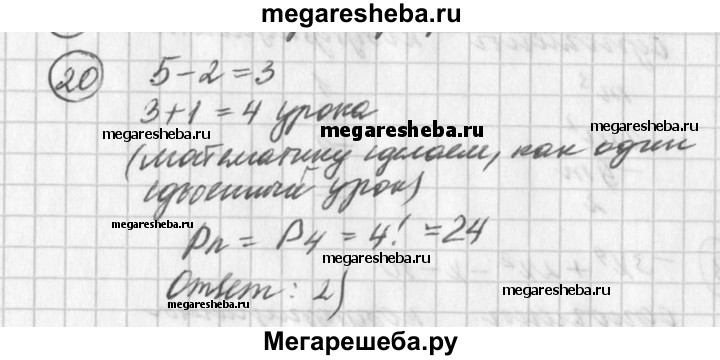 megaresheba.ru
20 5-2=3
3+1=4 урока
megaresheba.ru megaresheba.ru megaresheba.ru
(математику сделаем, как один
сдвоенный урок)
megaresheba.ru megaresheba.ru
Pn = P4 = 4! = 24
megaresheba.ru megaresheba.ru
Ответ: 2)
Мегарешеба.ру